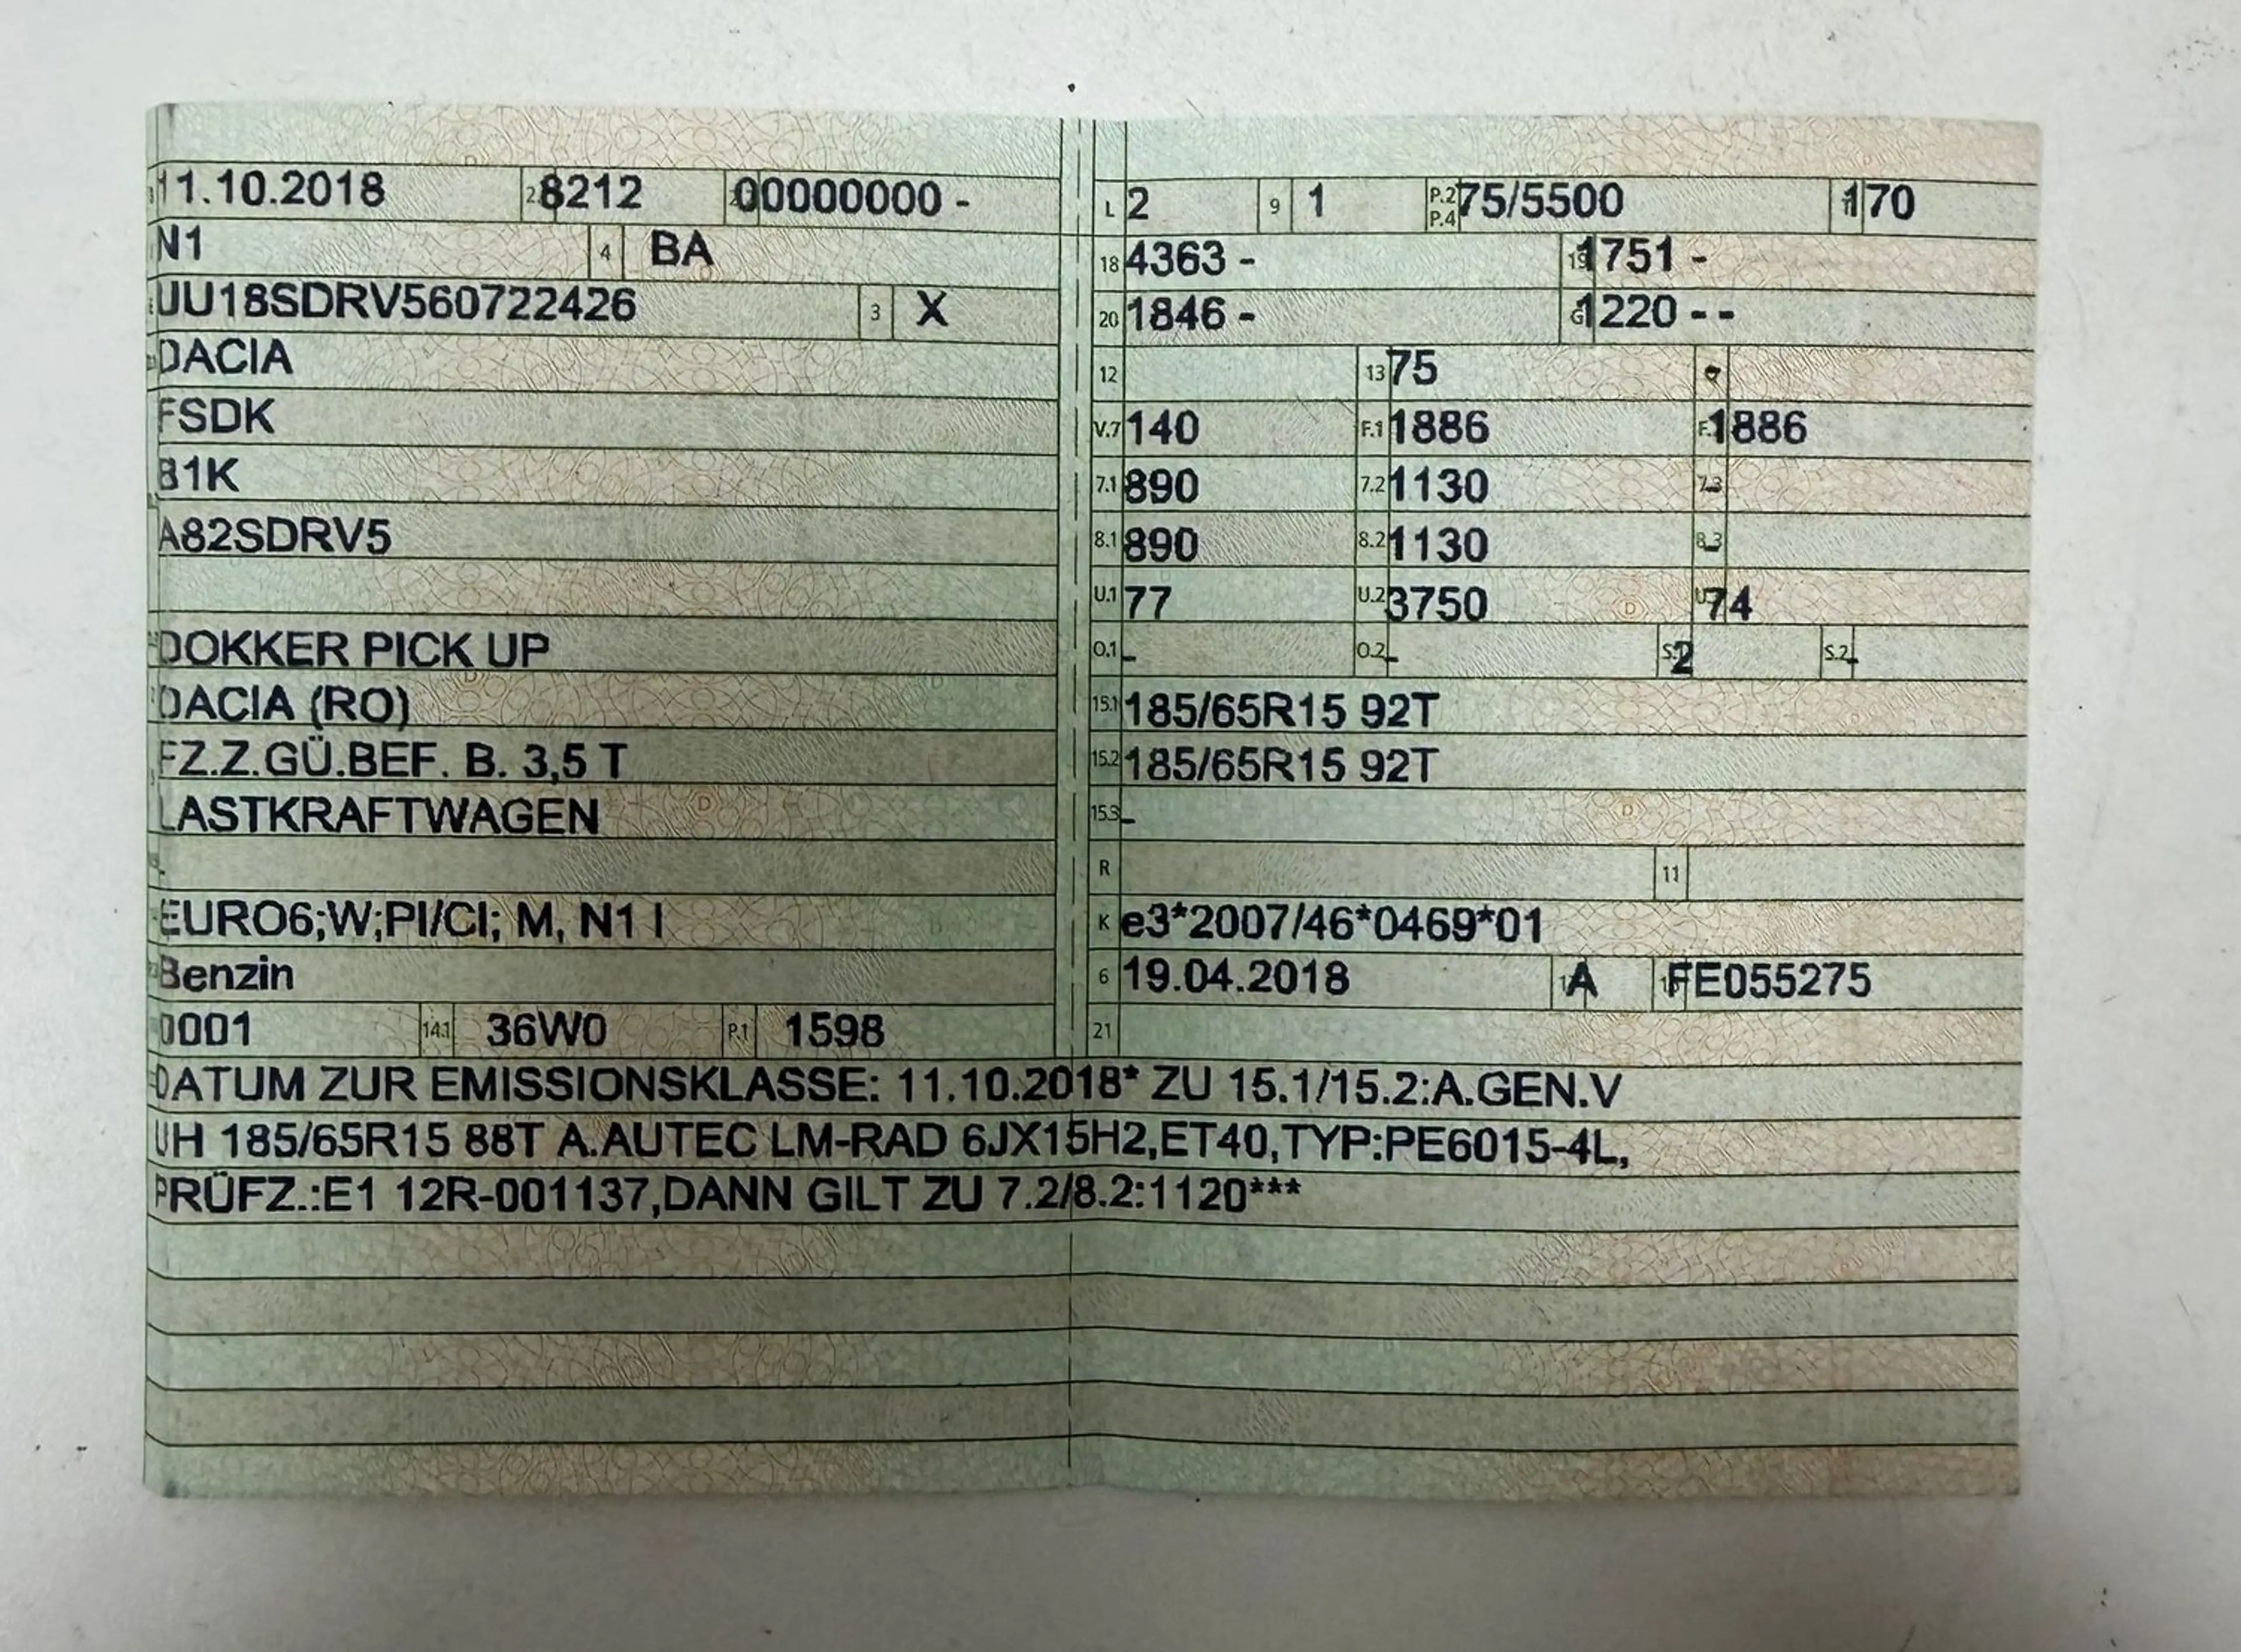 11.10.2018 8212 00000000 -
N1 4 BA
UU18SDRV560722426 3 X
DACIA
FSDK
B1K
A82SDRV5
DOKKER PICK UP
DACIA (RO)
FZ.Z.GÜ.BEF. B. 3,5 T
LASTKRAFTWAGEN
-
EURO6;W;PI/CI; M, N1 I
Benzin
0001 14.1 36W0 P.1 1598
L 2 9 1 P.2 P.4 75/5500 T 170
18 4363 - 19 1751 -
20 1846 - G 1220 - -
12 13 75 Q -
V.7 140 F.1 1886 F.2 1886
7.1 890 7.2 1130 7.3 -
8.1 890 8.2 1130 8.3 -
U.1 77 U.2 3750 U.3 74
O.1 - O.2 - S.1 2 S.2 -
15.1 185/65R15 92T
15.2 185/65R15 92T
15.3 -
R 11
K e3*2007/46*0469*01
6 19.04.2018 A FE055275
21
DATUM ZUR EMISSIONSKLASSE: 11.10.2018* ZU 15.1/15.2:A.GEN.V
UH 185/65R15 88T A.AUTEC LM-RAD 6JX15H2,ET40,TYP:PE6015-4L,
PRÜFZ.:E1 12R-001137,DANN GILT ZU 7.2/8.2:1120***